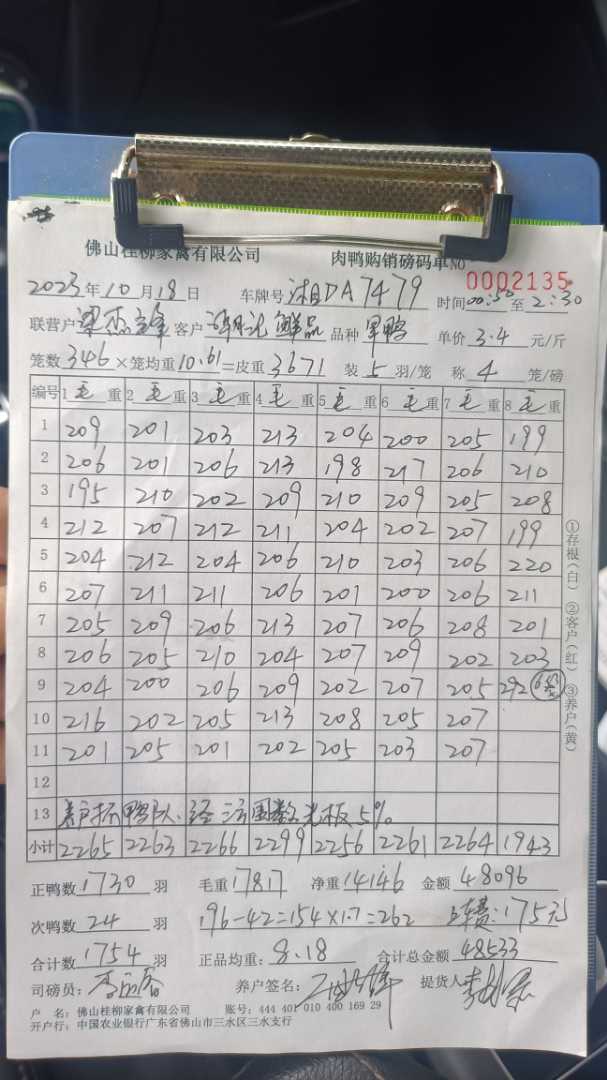 佛山桂柳家禽有限公司 肉鸭购销磅码单NO 0002135
2023年10月18日 车牌号湘DA7479 时间00:50至2:30
联营户 客户 鲜品 品种 单价3.4元/斤
笼数346×笼均重10.61=皮重3671 装5羽/笼 称4笼/磅
编号 1毛重 2毛重 3毛重 4毛重 5毛重 6毛重 7毛重 8毛重
1 209 201 203 213 204 200 205 199
2 206 201 206 213 198 217 206 210
3 195 210 202 209 210 209 205 208
4 212 207 212 211 204 202 207 199
5 204 212 204 206 210 203 206 220
6 207 211 211 206 201 200 206 211
7 205 209 206 213 207 206 208 201
8 206 205 210 204 207 209 202 203
9 204 200 206 209 202 207 205 292
10 216 202 205 213 208 205 207
11 201 205 201 202 205 203 207
12
13 5%
小计 2265 2263 2266 2299 2256 2261 2264 1943
正鸭数1730羽 毛重17817 净重14146 金额48096
次鸭数24羽 196-42=154×1.7=262 175元
合计数1754羽 正品均重:8.18 合计总金额48533
司磅员: 养户签名: 提货人
户 名:佛山桂柳家禽有限公司 账号:444 401 010 400 169 29
开户行:中国农业银行广东省佛山市三水区三水支行
①存根(白) ②客户(红) ③养户(黄)